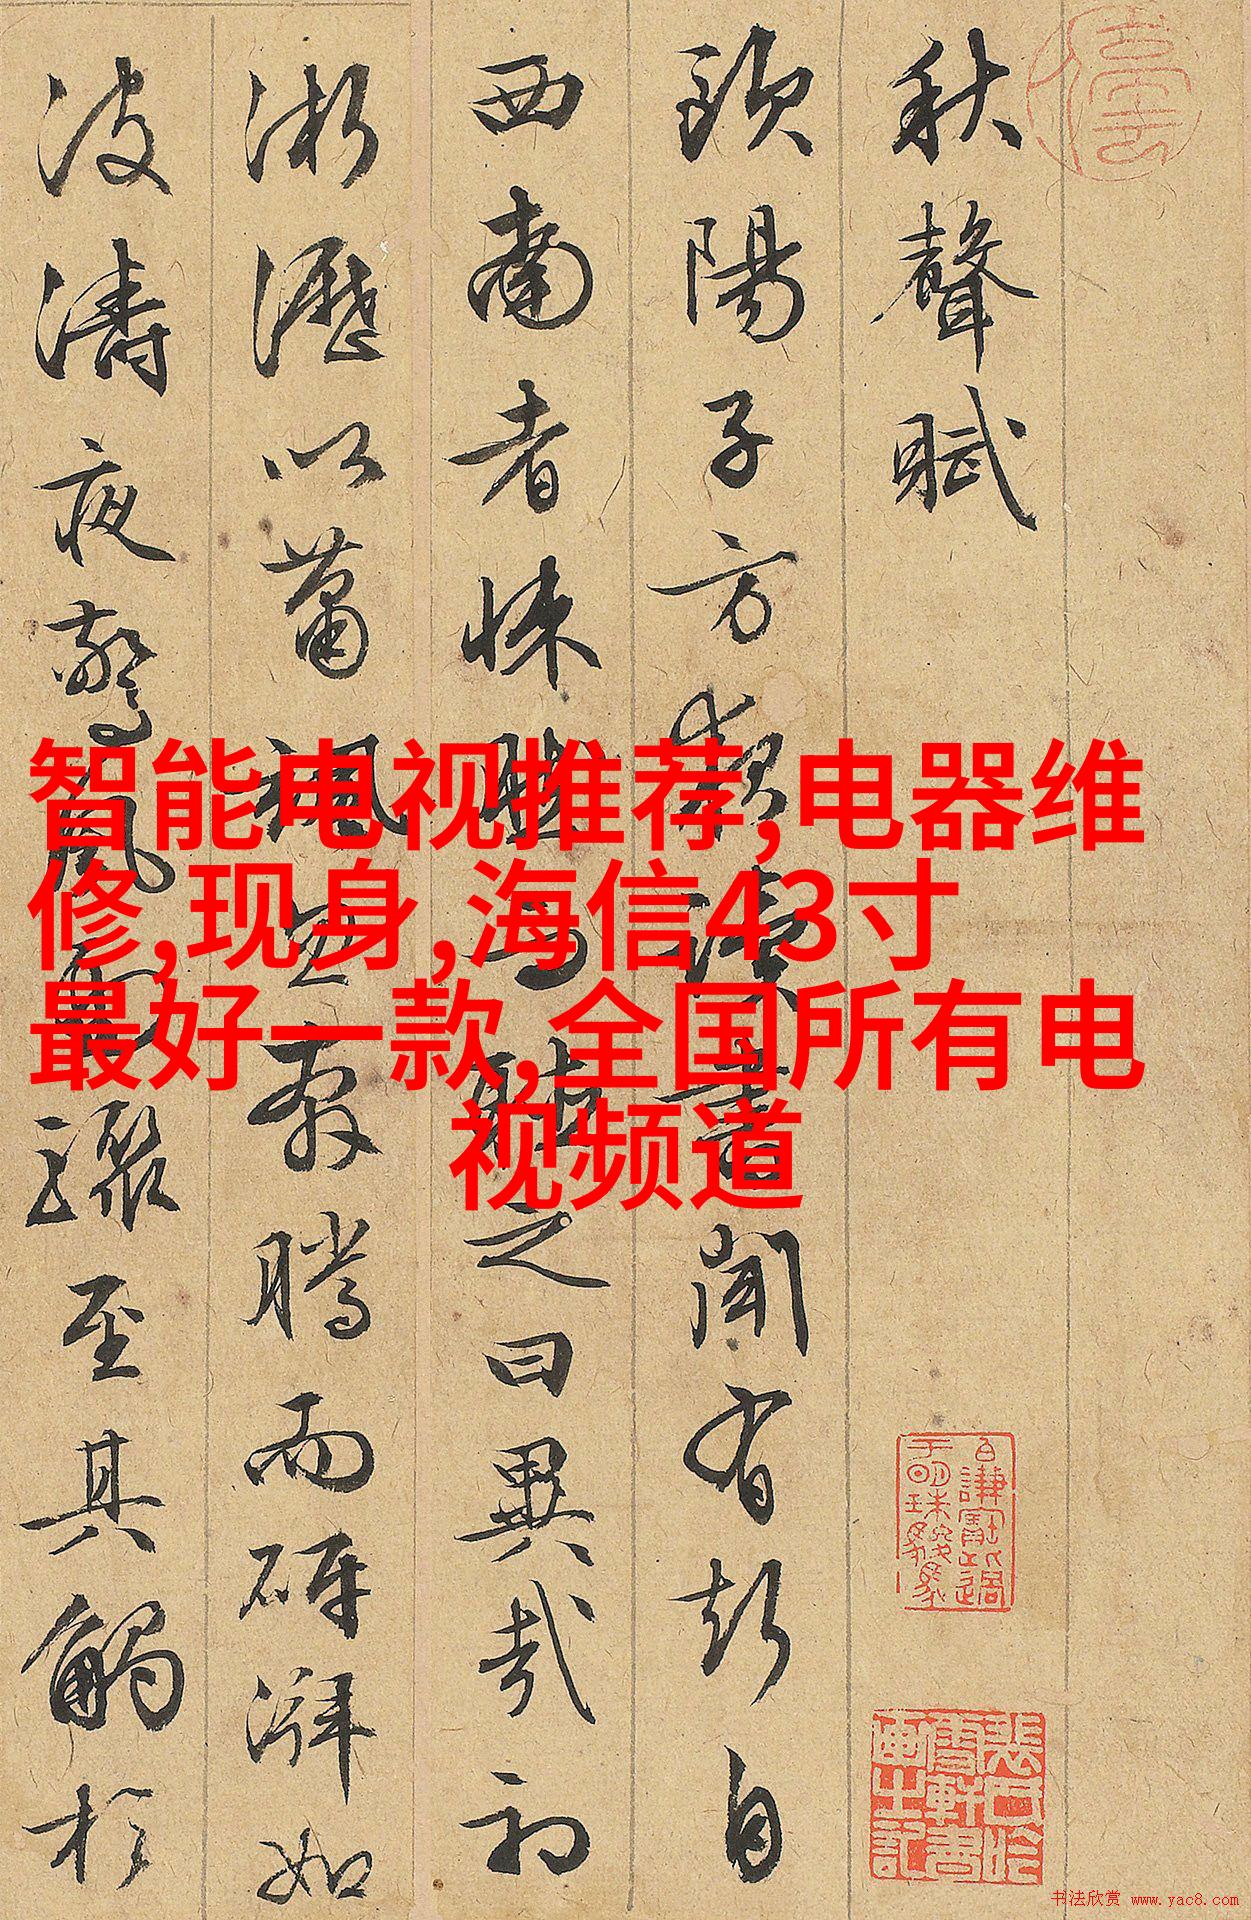 秋聲賦
歐陽子方夜讀書聞有聲自
西南者悚然而聽之曰異哉初
淅瀝以蕭颯忽奔騰而砰湃如
波濤夜驚風雨驟至其觸於
智能电视推荐,电器维
修,现身,海信43寸
最好一款,全国所有电
视频道
书法欣赏 www.yac8.com